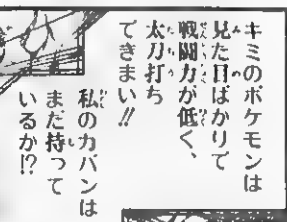 キミのポケモンは
見た目ばかりで
戦闘力が低く、
太刀打ち
できまい!!
私のカバンは
まだ持って
いるか!?